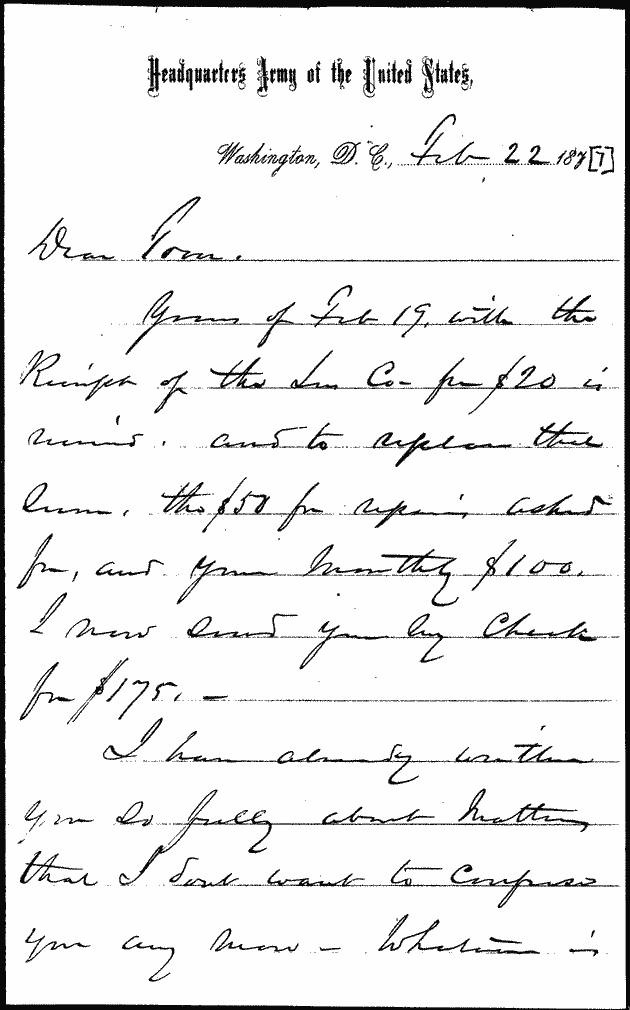 Headquarters Army of the United States,
Washington, D. C., Feb 22 187[7]
Dear Tom.
Yours of Feb 19, with the
Receipt of the Ins Co - for $20 is
recevd. and to replace that
Sum, the $50 for repairs asked
for, and your Monthly $100.
I now send you my Check
for $175. —
I have already written
you so fully about Matters
that I dont want to confuse
you any more - Whatever is